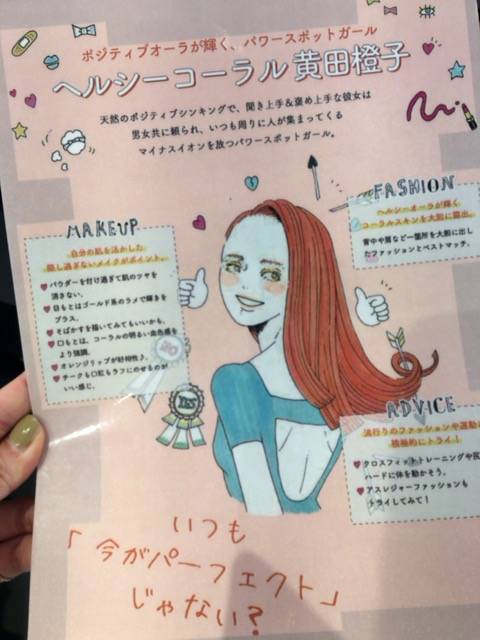 ポジティブオーラが輝く、パワースポットガール
ヘルシーコーラル 黄田橙子
天然のポジティブシンキングで、聞き上手&褒め上手な彼女は
男女共に頼られ、いつも周りに人が集まってくる
マイナスイオンを放つパワースポットガール。
MAKEUP
自分の肌を活かした
隠し過ぎないメイクがポイント。
パウダーを付け過ぎて肌のツヤを
消さない。
目もとはゴールド系のラメで輝きを
プラス。
そばかすを描いてみてもいいかも。
口もとは、コーラルの明るい血色感を
より強調。
オレンジリップが好相性♪
チークも口紅もラフにのせるのが
いい感じ。
NO
YES
FASHION
ヘルシーオーラが輝く
コーラルスキンを大胆に露出。
背中や肩など一箇所を大胆に出し
たファッションとベストマッチ。
ADVICE
流行りのファッションや運動
積極的にトライ!
クロスフィットトレーニングや
ハードに体を動かそう。
アスレジャーファッションも
トライしてみて!
いつも
「今がパーフェクト」
じゃない?